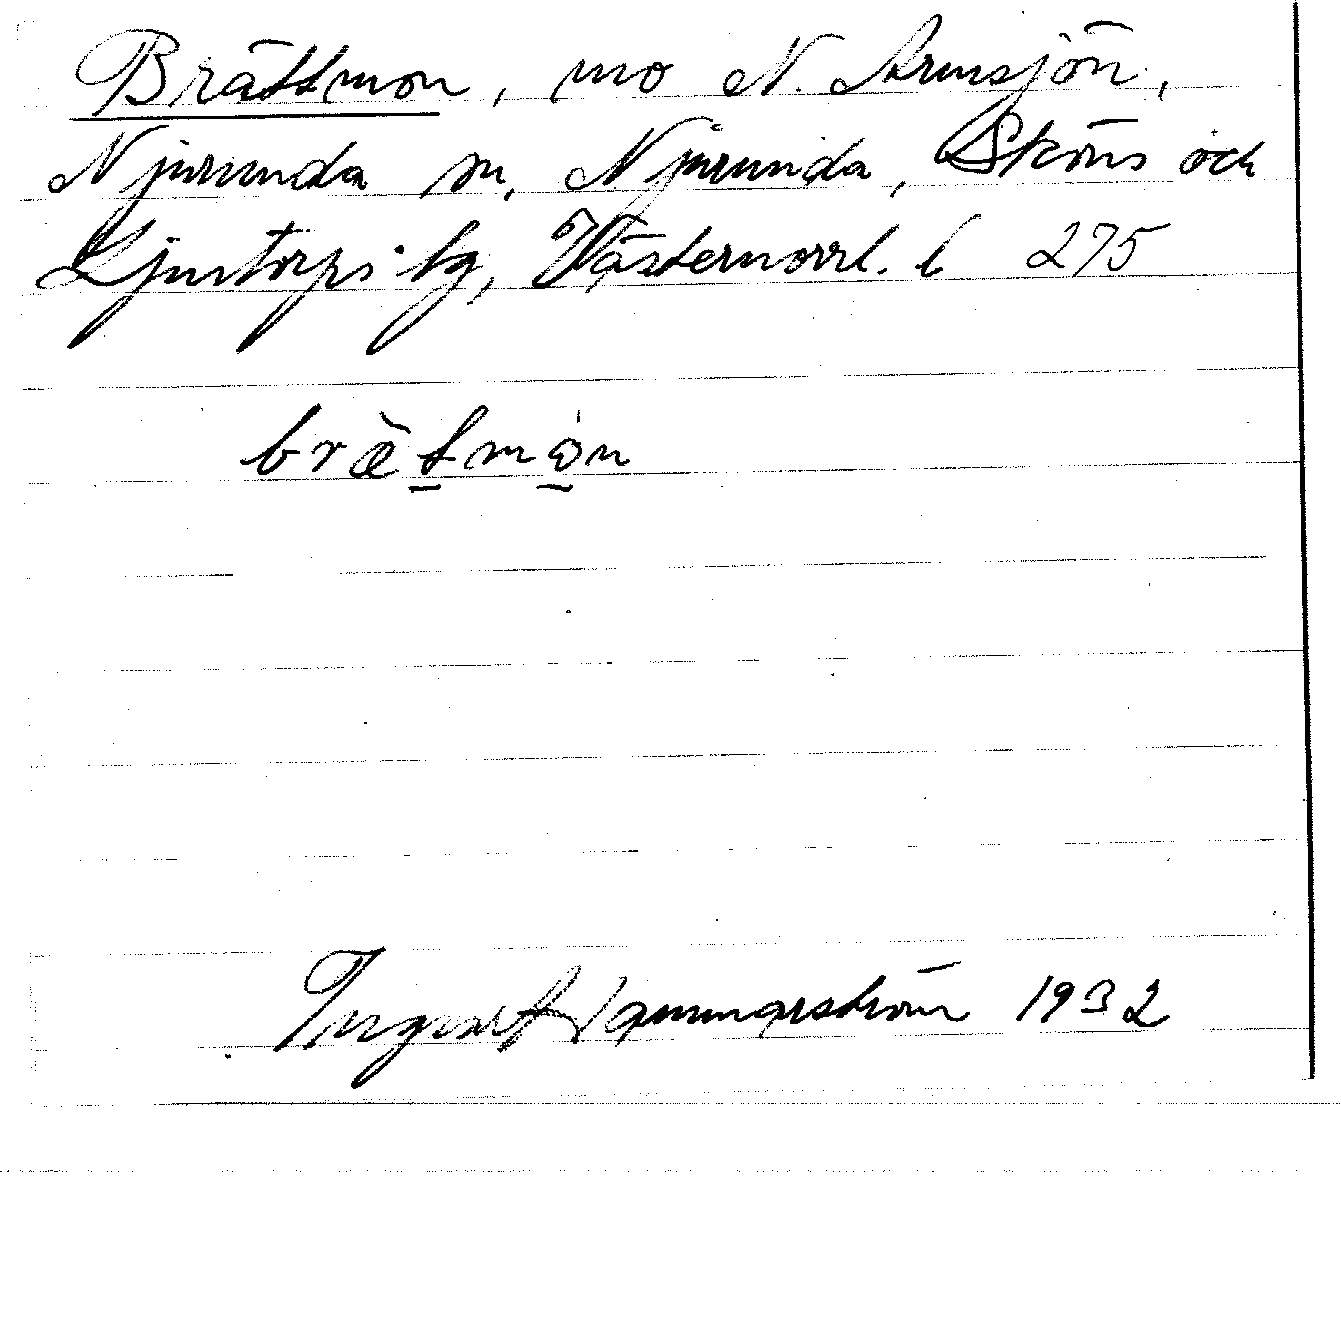 Brättmon, mo N. Armsjön,
Njurunda sn, Njurunda, Sköns och
Ljustorps tg, Västernorrl. l 275
brætmòn
Ingvart Hammarström 1932